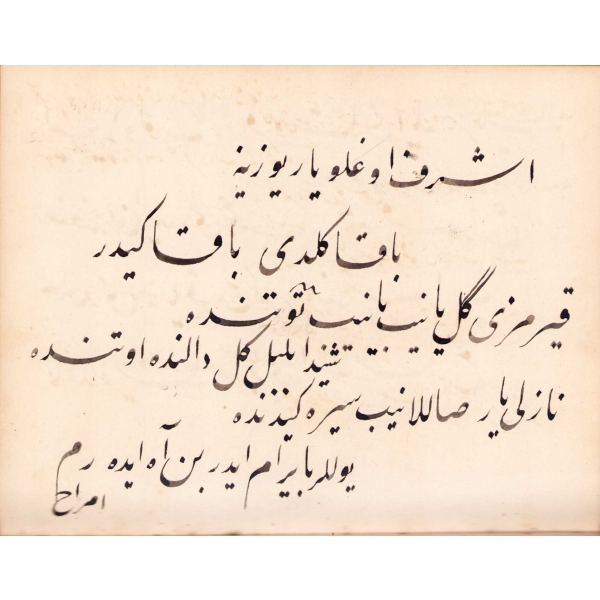 اشرف اوغلو يار يوزينه
باقا كلدى باقا كيدر
قيرمزى گل يانيب يانيب توتنده
شيدا بلبل كل دالنده اوتنده
نازلى يار صاللانيب سيره كيدنده
يوللر بايرام ايدر بن آه ايده رم
امراح